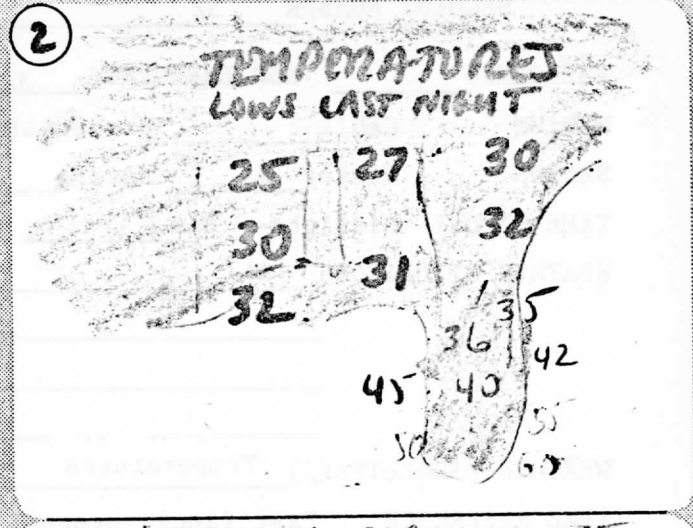 2
TEMPERATURES
LOWS LAST NIGHT
25 27 30
30 32
31
32
35
36
42
45 40
55
50
60